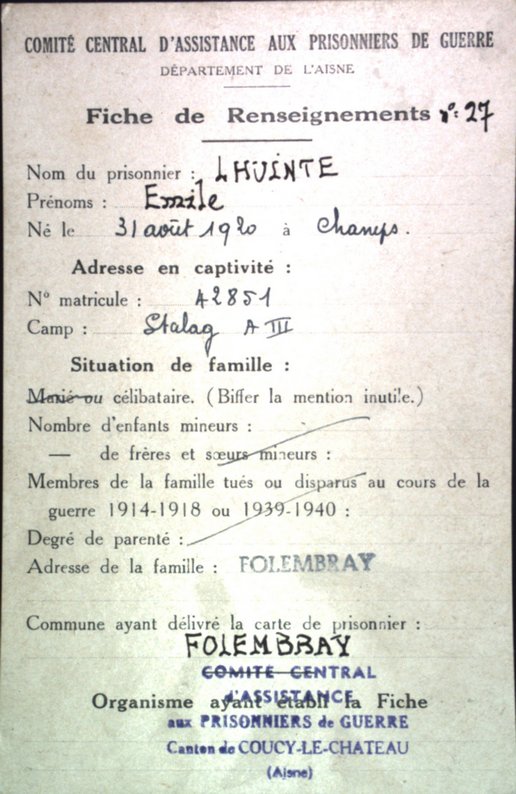 COMITÉ CENTRAL D'ASSISTANCE AUX PRISONNIERS DE GUERRE
DÉPARTEMENT DE L'AISNE
Fiche de Renseignements n°: 27
Nom du prisonnier : LHUINTE
Prénoms : Emile
Né le 31 août 1920 à Champs.
Adresse en captivité :
N° matricule : 42851
Camp : Stalag A III
Situation de famille :
Marié ou célibataire. (Biffer la mention inutile.)
Nombre d'enfants mineurs :
— de frères et sœurs mineurs :
Membres de la famille tués ou disparus au cours de la
guerre 1914-1918 ou 1939-1940 :
Degré de parenté :
Adresse de la famille : FOLEMBRAY
Commune ayant délivré la carte de prisonnier :
FOLEMBRAY
COMITE CENTRAL
d'ASSISTANCE
Organisme ayant établi la Fiche
aux PRISONNIERS de GUERRE
Canton de COUCY-LE-CHATEAU
(Aisne)